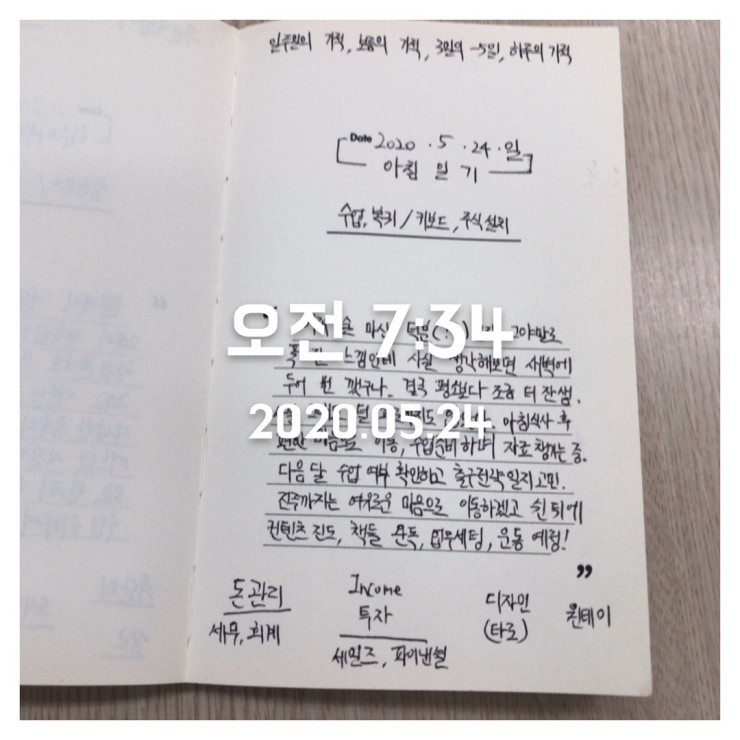 일주일의 기적, 보름의 기적, 3일의 -5일, 하루의 기적
Date 2020 . 5 . 24 . 일
아침 일기
수업, 복기 / 키보드, 주식 설치
오전 7:34
술 마신 덕분(?) 그야말로
푹 잔 느낌인데 사실 생각해보면 새벽에
두어 번 깼구나. 결국 평소보다 조금 더 잔 셈.
2020.05.24
아침식사 후
편안 마음으로 이동, 수업준비하며 자료 찾는 중.
다음 달 수업 여부 확인하고 출구전략일지 고민.
진주까지는 여유로운 마음으로 이동하겠고 쉰 뒤에
컨텐츠 진도, 책들 완독, 업무세팅, 운동 예정!
”
돈관리 Income 디자인 원데이
투자 (타로)
세무, 회계
세일즈, 파이낸셜